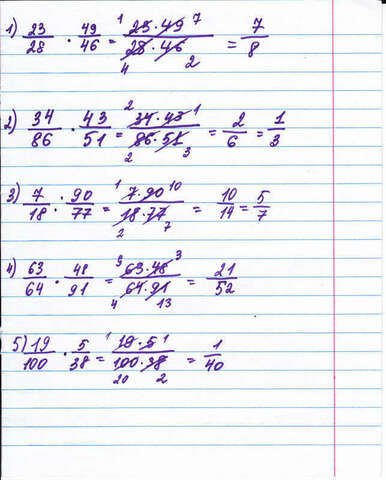 1) 23/28 · 49/46 = 23·49/28·46 = 7/8
2) 34/86 · 43/51 = 34·43/86·51 = 2/6 = 1/3
3) 7/18 · 90/77 = 7·90/18·77 = 10/14 = 5/7
4) 63/64 · 48/91 = 63·48/64·91 = 21/52
5) 19/100 · 5/38 = 19·5/100·38 = 1/40